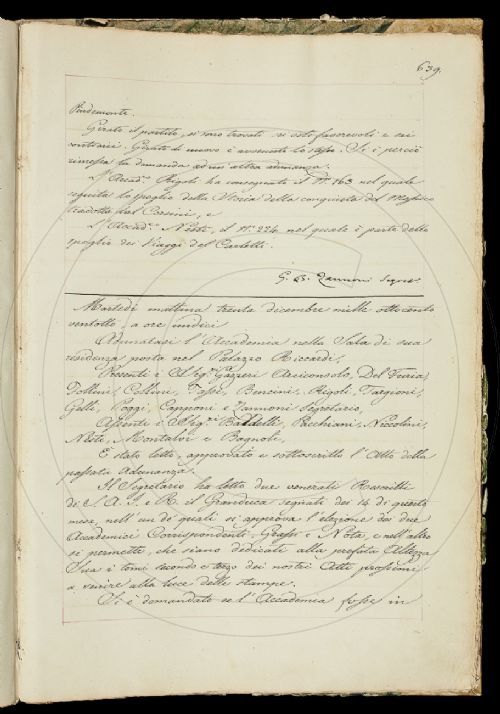 639.
Pindemonte.
Girato il partito, si sono trovati sei voti favorevoli e sei
contrarii. Girato di nuovo è avvenuto lo stesso. Si è perciò
rimessa la domanda ad un'altra adunanza.
L'Accad.º Rigoli ha consegnato il N.º 163 nel quale
seguita lo spoglio della Storia della conquista del Messico
tradotta dal Corsini, e
L'Accad.º Nesti, il N.º 224 nel quale è parte dello
spoglio dei Viaggi del Carletti.
G. B. Zannoni Segret.
Martedì mattina trenta dicembre mille ottocento
ventotto a ore undici
Adunatasi l'Accademia nella Sala di sua
residenza posta nel Palazzo Riccardi,
Presenti i SSig.ri Gazzeri Arciconsolo, Del Furia,
Follini, Collini, Fossi, Bencini, Rigoli, Targioni,
Gelli, Poggi, Capponi e Zannoni Segretario,
Assenti i SSig.ri Baldelli, Pacchiani, Niccolini,
Nesti, Montalvi e Bagnoli,
È stato letto, approvato e sottoscritto l'Atto della
passata Adunanza.
Il Segretario ha letto due venerati Rescritti
di S. A. I. e R. il Granduca segnati dei 14 di questo
mese, nell'un de' quali si approva l'elezione dei due
Accademici Corrispondenti, Grassi e Nota, e nell'altro
si permette, che siano dedicati alla prefata Altezza
Sua i tomi secondo e terzo dei nostri Atti prossimi
a venire alla luce delle stampe.
Si è domandato se l'Accademia fosse in